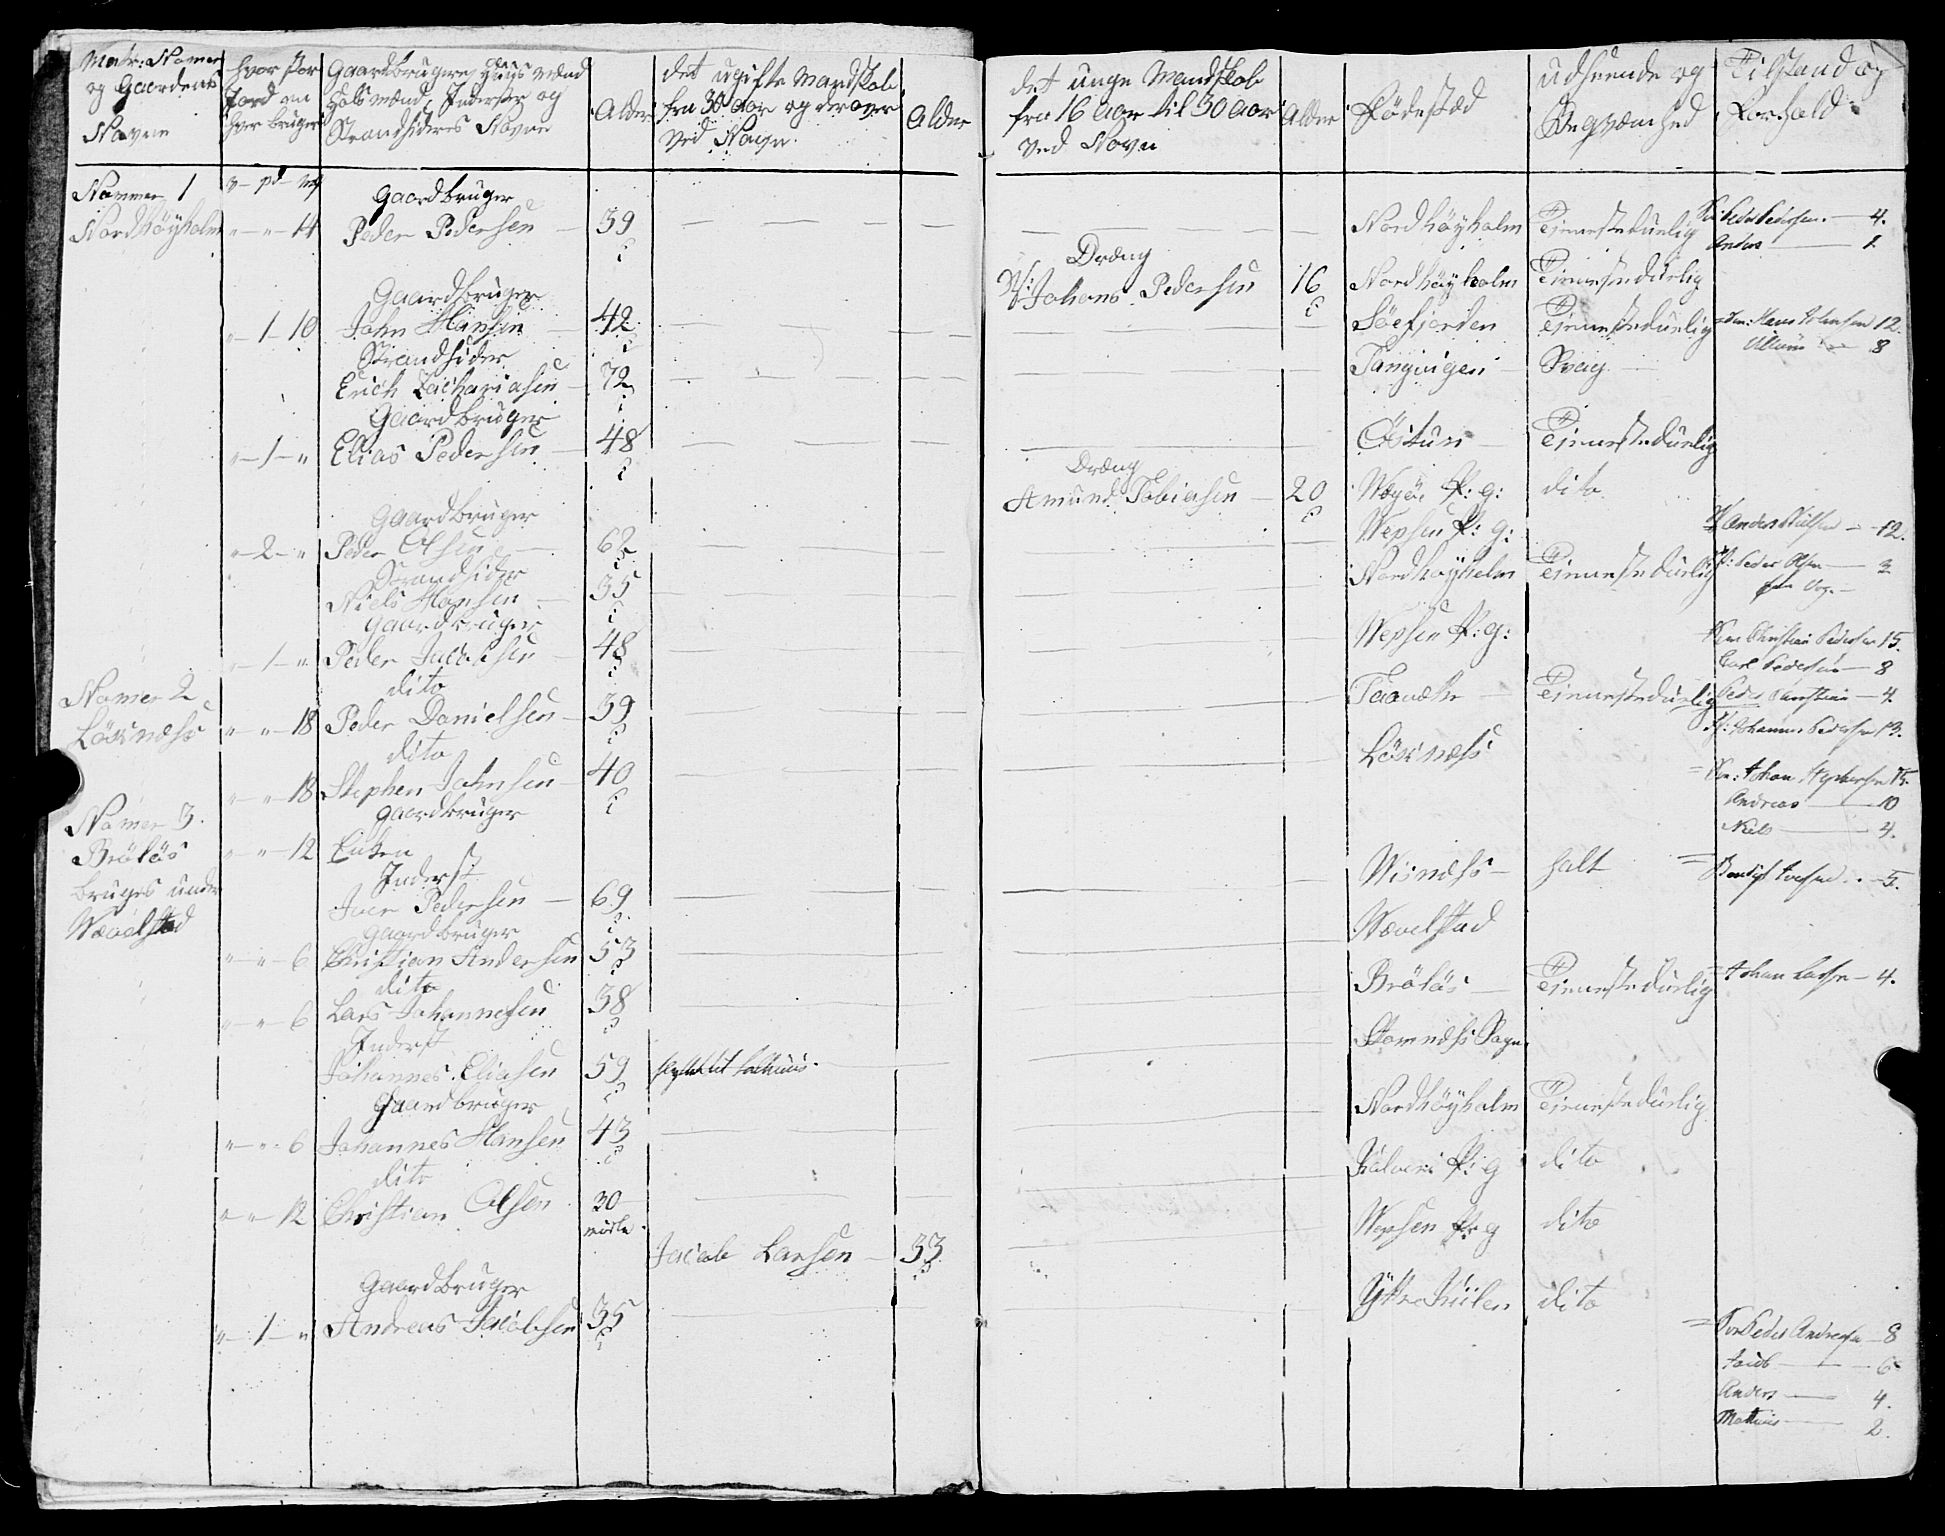 Matr: Namer og Gaardens Navne
hvor stor Jord en hver bruger
Gaardbrugere, Huus mænd Inderster og Strandsideres Navne
Alder
det ugifte Mandskab fra 30 aar og derover ved Navn
Alder
det unge Mandskab fra 16 Aar til 30 Aar ved Navn
Alder
Fødestæd
udseende og Begvæmhed
Tilstand og Forhold
Nammer 1
Nordhöyholm
Gaardbruger
" " 14 Peder Pedersen 39 Nordhöyholm Tienestedurlig Peder Pedersen 4.
Anders 1.
Dræng
Johans Pedersen 16 Nordhöyholm Tienestedurlig
Gaardbruger
" 1 10 John Hansen 42 Söefjorden Tienestedurlig Hans Johnsen 12.
8
Strandsider
Erich Zachariasen 72 Tangvigen Svag
Gaardbruger
" 1 " Elias Pedersen 48 Tienestedurlig
Dræng
Amund Tobiasen 20 P: g: dito
Gaardbruger
" 2 " Peder Olsen 62 Wepsen P: g: Anders 12.
Strandsider
Niels Hansen 35 Nordhöyholm Tienestedurlig Peder Olsen 3
Gaardbruger
" 1 " Peder Jacobsen 48 Wepsen P: g: Christian Pedersen 15.
Carl Pedersen 8
Namer 2
Lösnæss
dito
" " 18 Peder Danielsen 39 Tienestedurlig Peder Christian 4.
Johannes Pedersen 13.
dito
" " 18 Stephen Johnsen 40 Lösnæss Johan Stephensen 15.
Andreas 10
Niels 4.
Namer 3.
Bröløs
bruges under
Wævelstad
Gaardbruger
" " 12 Enken
Inderst
Iver Pedersen 69 Wisnæss halt 5.
Gaardbruger
" " 6 Christian Andersen 53 Wævelstad
dito
" " 6 Lars Johannesen 38 Bröløs Tienestedurlig Johan Larsen 4.
Inderst
Johannes Eliasen 59 Stamnæss Sogn
Gaardbruger
" " 6 Johannes Hansen 43 Nordhöyholm Tienestedurlig
dito
" " 12 Christian Olsen 30 P: g dito
Jacob Larsen 33 Wepsen P: g dito
Gaardbruger
" 1 " Andreas Jacobsen 35 Yttre dito Peder Andreasen 8
Jacob 6
Anders 4.
Mathias 2.